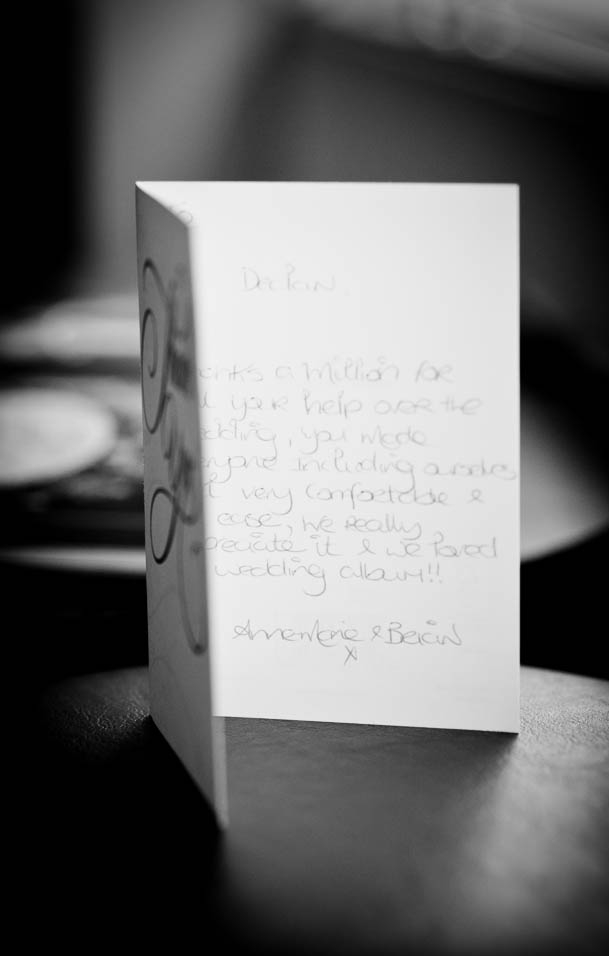 Declan
anks a million for
l your help over the
dding, you made
ryone including ourselves
l very comfortable &
ease, we really
preciate it & we loved
wedding album!!
Annemarie & Brian
x